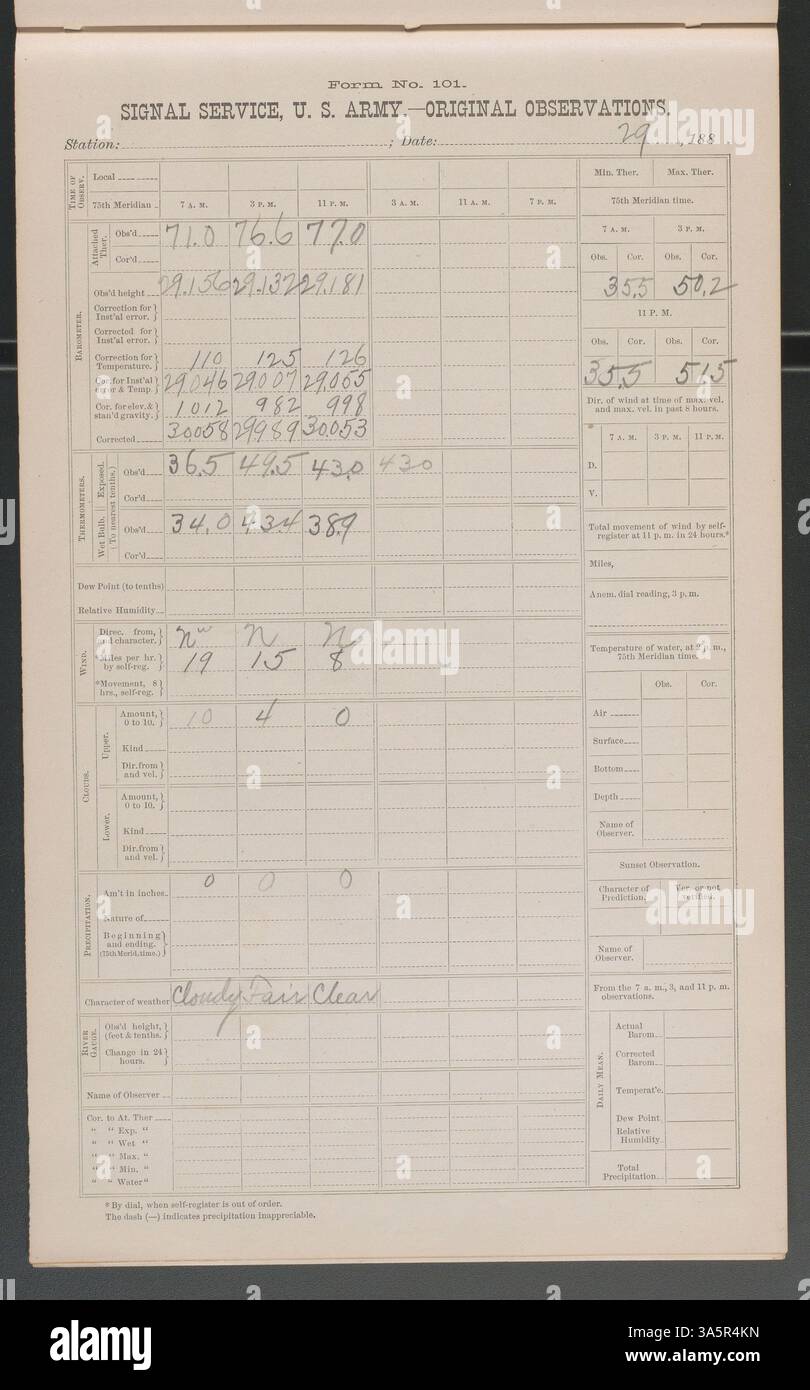 Form No. 101.
SIGNAL SERVICE, U. S. ARMY.—ORIGINAL OBSERVATIONS.
Station: ; Date: 29, 188
TIME OF OBSERV. Local
75th Meridian 7 A. M. 3 P. M. 11 P. M. 3 A. M. 11 A. M. 7 P. M.
BAROMETER.
Attached Ther. Obs'd 71.0 76.6 77.0
Cor'd
Obs'd height 29.156 29.132 29.181
Correction for Inst'al error.
Corrected for Inst'al error.
Correction for Temperature. 110 125 126
Cor. for Inst'al error & Temp. 29.046 29.007 29.055
Cor. for elev. & stan'd gravity. 1012 982 998
Corrected 30.058 29.989 30.053
THERMOMETERS.
(To nearest tenths.)
Exposed. Obs'd 36.5 49.5 43.0 43.0
Cor'd
Wet Bulb. Obs'd 34.0 43.4 38.9
Cor'd
Dew Point (to tenths)
Relative Humidity
WIND.
Direc. from, and character. nw n n
*Miles per hr. by self-reg. 19 15 8
*Movement, 8 hrs., self-reg.
CLOUDS.
Upper. Amount, 0 to 10. 10 4 0
Kind
Dir. from and vel.
Lower. Amount, 0 to 10.
Kind
Dir. from and vel.
PRECIPITATION.
Am't in inches. 0 0 0
Nature of
Beginning and ending. (75th Merid. time.)
Character of weather Cloudy Fair Clear
RIVER GAUGE.
Obs'd height, (feet & tenths.)
Change in 24 hours.
Name of Observer
Cor. to At. Ther
" " Exp. "
" " Wet "
" " Max. "
" " Min. "
" " Water "
* By dial, when self-register is out of order.
The dash (—) indicates precipitation inappreciable.
Min. Ther. Max. Ther.
75th Meridian time.
7 A. M. 3 P. M.
Obs. Cor. Obs. Cor.
35.5 50.2
11 P. M.
Obs. Cor. Obs. Cor.
35.5 51.5
Dir. of wind at time of max. vel. and max. vel. in past 8 hours.
7 A. M. 3 P. M. 11 P. M.
D.
V.
Total movement of wind by self-register at 11 p. m. in 24 hours.*
Miles,
Anem. dial reading, 3 p. m.
Temperature of water, at 2 p. m., 75th Meridian time.
Obs. Cor.
Air
Surface
Bottom
Depth
Name of Observer.
Sunset Observation.
Character of Prediction. Ver. or not verified.
Name of Observer.
From the 7 a. m., 3, and 11 p. m. observations.
DAILY MEAN.
Actual Barom.
Corrected Barom.
Temperat'e.
Dew Point
Relative Humidity
Total Precipitation
alamy
Image ID: 3A5R4KN
www.alamy.com